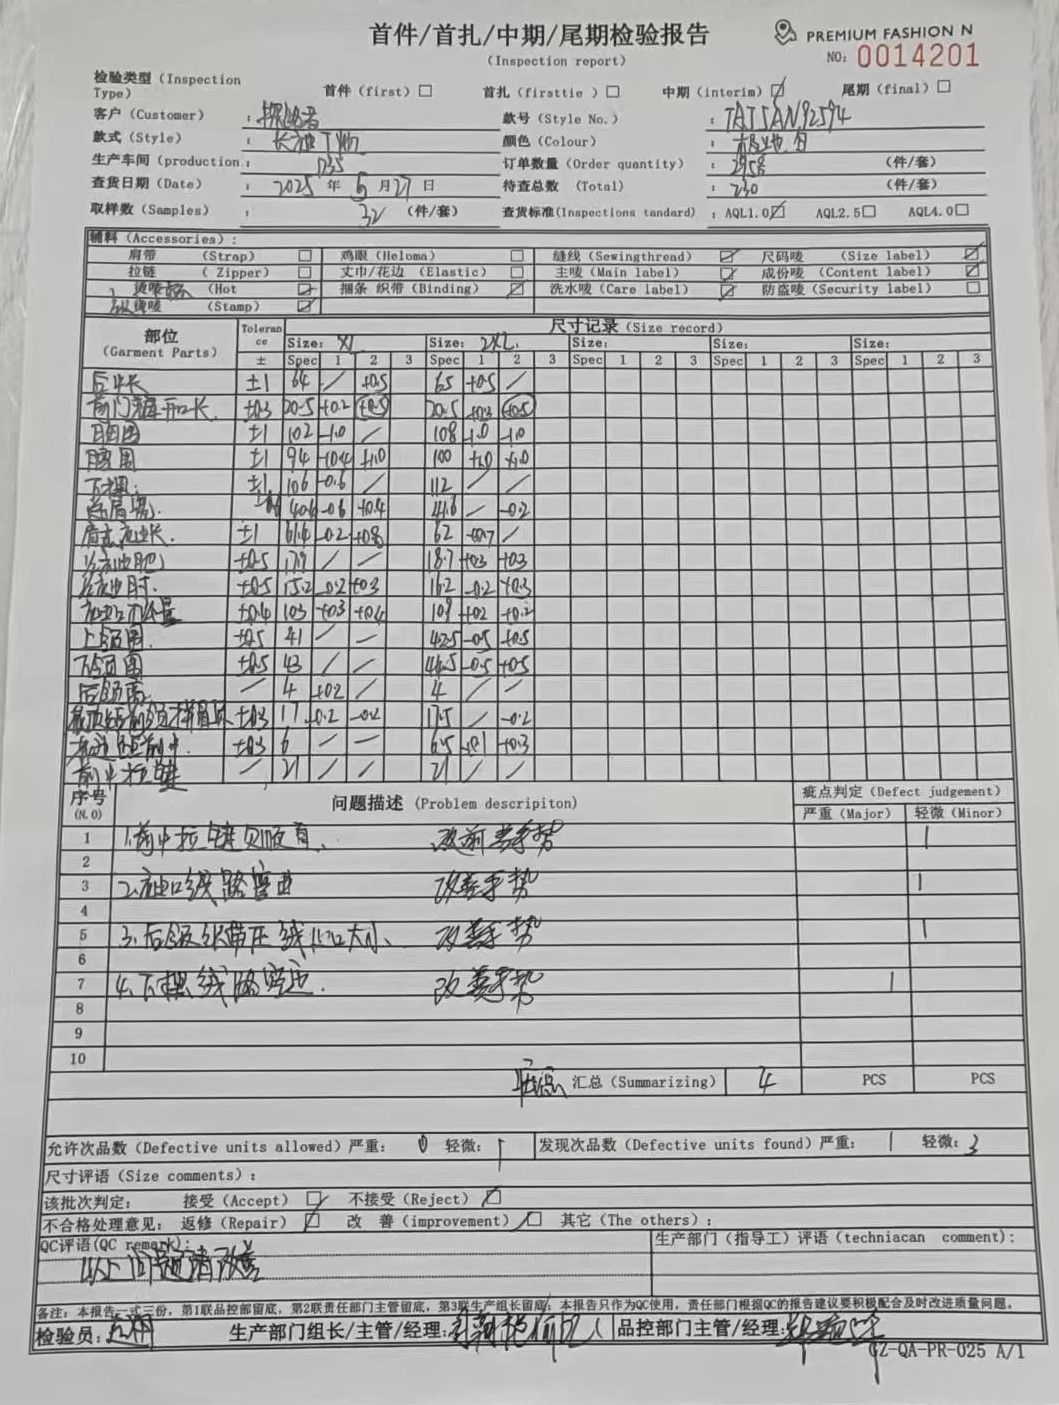 首件/首扎/中期/尾期检验报告
PREMIUM FASHION N
(Inspection report)
NO: 0014201
检验类型 (Inspection Type)
首件 (first) □ 首扎 (firsttie ) □ 中期 (interim) ☑ 尾期 (final) □
客户 (Customer) : 探路者 款号 (Style No.) : TAJSAN92594
款式 (Style) : 长袖T恤 颜色 (Colour) : 极地白
生产车间 (production : D35 订单数量 (Order quantity) : 2958 (件/套)
查货日期 (Date) : 2025 年 5 月 27 日 待查总数 (Total) : 230 (件/套)
取样数 (Samples) : 32 (件/套) 查货标准(Inspections tandard) : AQL1.0☑ AQL2.5□ AQL4.0□
辅料 (Accessories) :
肩带 (Strap) □ 鸡眼 (Heloma) □ 缝线 (Sewingthread) ☑ 尺码唛 (Size label) ☑
拉链 ( Zipper) □ 丈巾/花边 (Elastic) □ 主唛 (Main label) ☑ 成份唛 (Content label) ☑
(Hot ☑ 捆条 织带 (Binding) ☑ 洗水唛 (Care label) ☑ 防盗唛 (Security label) □
(Stamp) ☑
部位 (Garment Parts) Tolerance ± 尺寸记录 (Size record)
Size: XL Size: 2XL Size: Size: Size:
Spec 1 2 3 Spec 1 2 3 Spec 1 2 3 Spec 1 2 3 Spec 1 2 3
后中长 ±1 64 / +0.5 65 +0.5 /
前门襟开口长 ±0.3 20.5 +0.2 +0.5 20.5 +0.3 +0.5
胸围 ±1 102 -1.0 / 108 -1.0 -1.0
腰围 ±1 94 +0.4 +1.0 100 +1.0
下摆 ±1 106 -0.6 / 112 / /
总肩宽 40.6 -0.6 +0.4 41.6 / -0.2
肩袖长 ±1 61.4 -0.2 +0.8 62 +0.7 /
½袖肥 ±0.5 17.9 / / 18.7 +0.3 +0.3
½袖肘 ±0.5 15.2 -0.2 +0.3 16.2 -0.2 +0.3
±0.4 10.3 +0.3 +0.4 +0.2 +0.2
上领围 ±0.5 41 / - 42.5 -0.5 +0.5
下领围 ±0.5 43 / / 44.5 -0.5 +0.5
后领高 / 4 +0.2 / 4 / /
±0.3 17 -0.2 -0.2 17.5 / -0.2
±0.3 6 - - 6.5 +0.3
前中拉链 / 21 / / 21 / /
序号 (N.O) 问题描述 (Problem descripiton) 疵点判定 (Defect judgement)
严重 (Major) 轻微 (Minor)
1 1.前中拉链欠顺直、 改善手势 1
2
3 2.袖口线路弯曲 改善手势 1
4
5 3.后领织带压线止口大小、 改善手势 1
6
7 4.下摆线路弯曲. 改善手势 1
8
9
10
汇总 (Summarizing) 4 PCS PCS
允许次品数 (Defective units allowed) 严重: 0 轻微: 1 发现次品数 (Defective units found) 严重: 1 轻微: 3
尺寸评语 (Size comments) :
该批次判定: 接受 (Accept) □ 不接受 (Reject) ☑
不合格处理意见: 返修 (Repair) ☑ 改 善 (improvement) ☑ 其它 (The others) :
QC评语(QC remark): 生产部门 (指导工) 评语 (techniacan comment):
以上问题请改善
备注: 本报告一式三份, 第1联品控部留底, 第2联责任部门主管留底, 第3联生产组长留底; 本报告只作为QC使用, 责任部门根据QC的报告建议要积极配合及时改进质量问题.
检验员: 生产部门组长/主管/经理: 品控部门主管/经理:
GZ-QA-PR-025 A/1